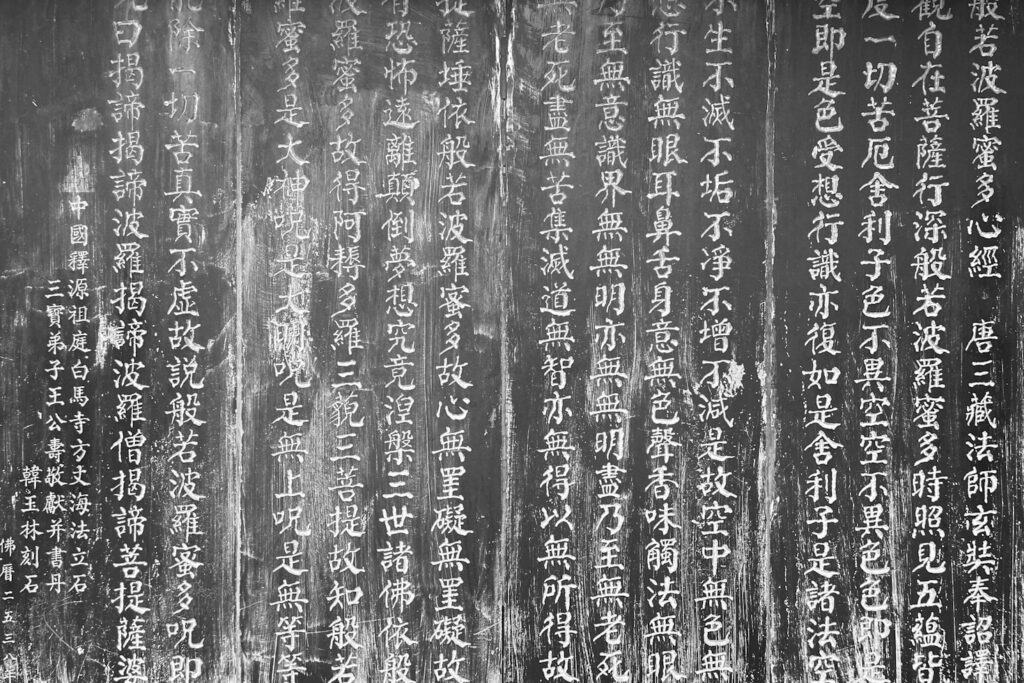 般若波羅蜜多心經 唐三藏法師玄奘奉詔譯
觀自在菩薩行深般若波羅蜜多時照見五蘊皆
度一切苦厄舍利子色不異空空不異色色即是
空即是色受想行識亦復如是舍利子是諸法空
不生不滅不垢不淨不增不減是故空中無色無
想行識無眼耳鼻舌身意無色聲香味觸法無眼
乃至無意識界無無明亦無無明盡乃至無老死
無老死盡無苦集滅道無智亦無得以無所得故
提薩埵依般若波羅蜜多故心無罣礙無罣礙故
有恐怖遠離顛倒夢想究竟涅槃三世諸佛依般
波羅蜜多故得阿耨多羅三藐三菩提故知般若
羅蜜多是大神呪是大明呪是無上呪是無等等
能除一切苦真實不虛故說般若波羅蜜多呪即
呪曰揭諦揭諦波羅揭諦波羅僧揭諦菩提薩婆
中國釋源祖庭白馬寺方丈海法立石
三寶弟子王公壽敬獻并書丹
韓玉林刻石
佛曆二五三八年